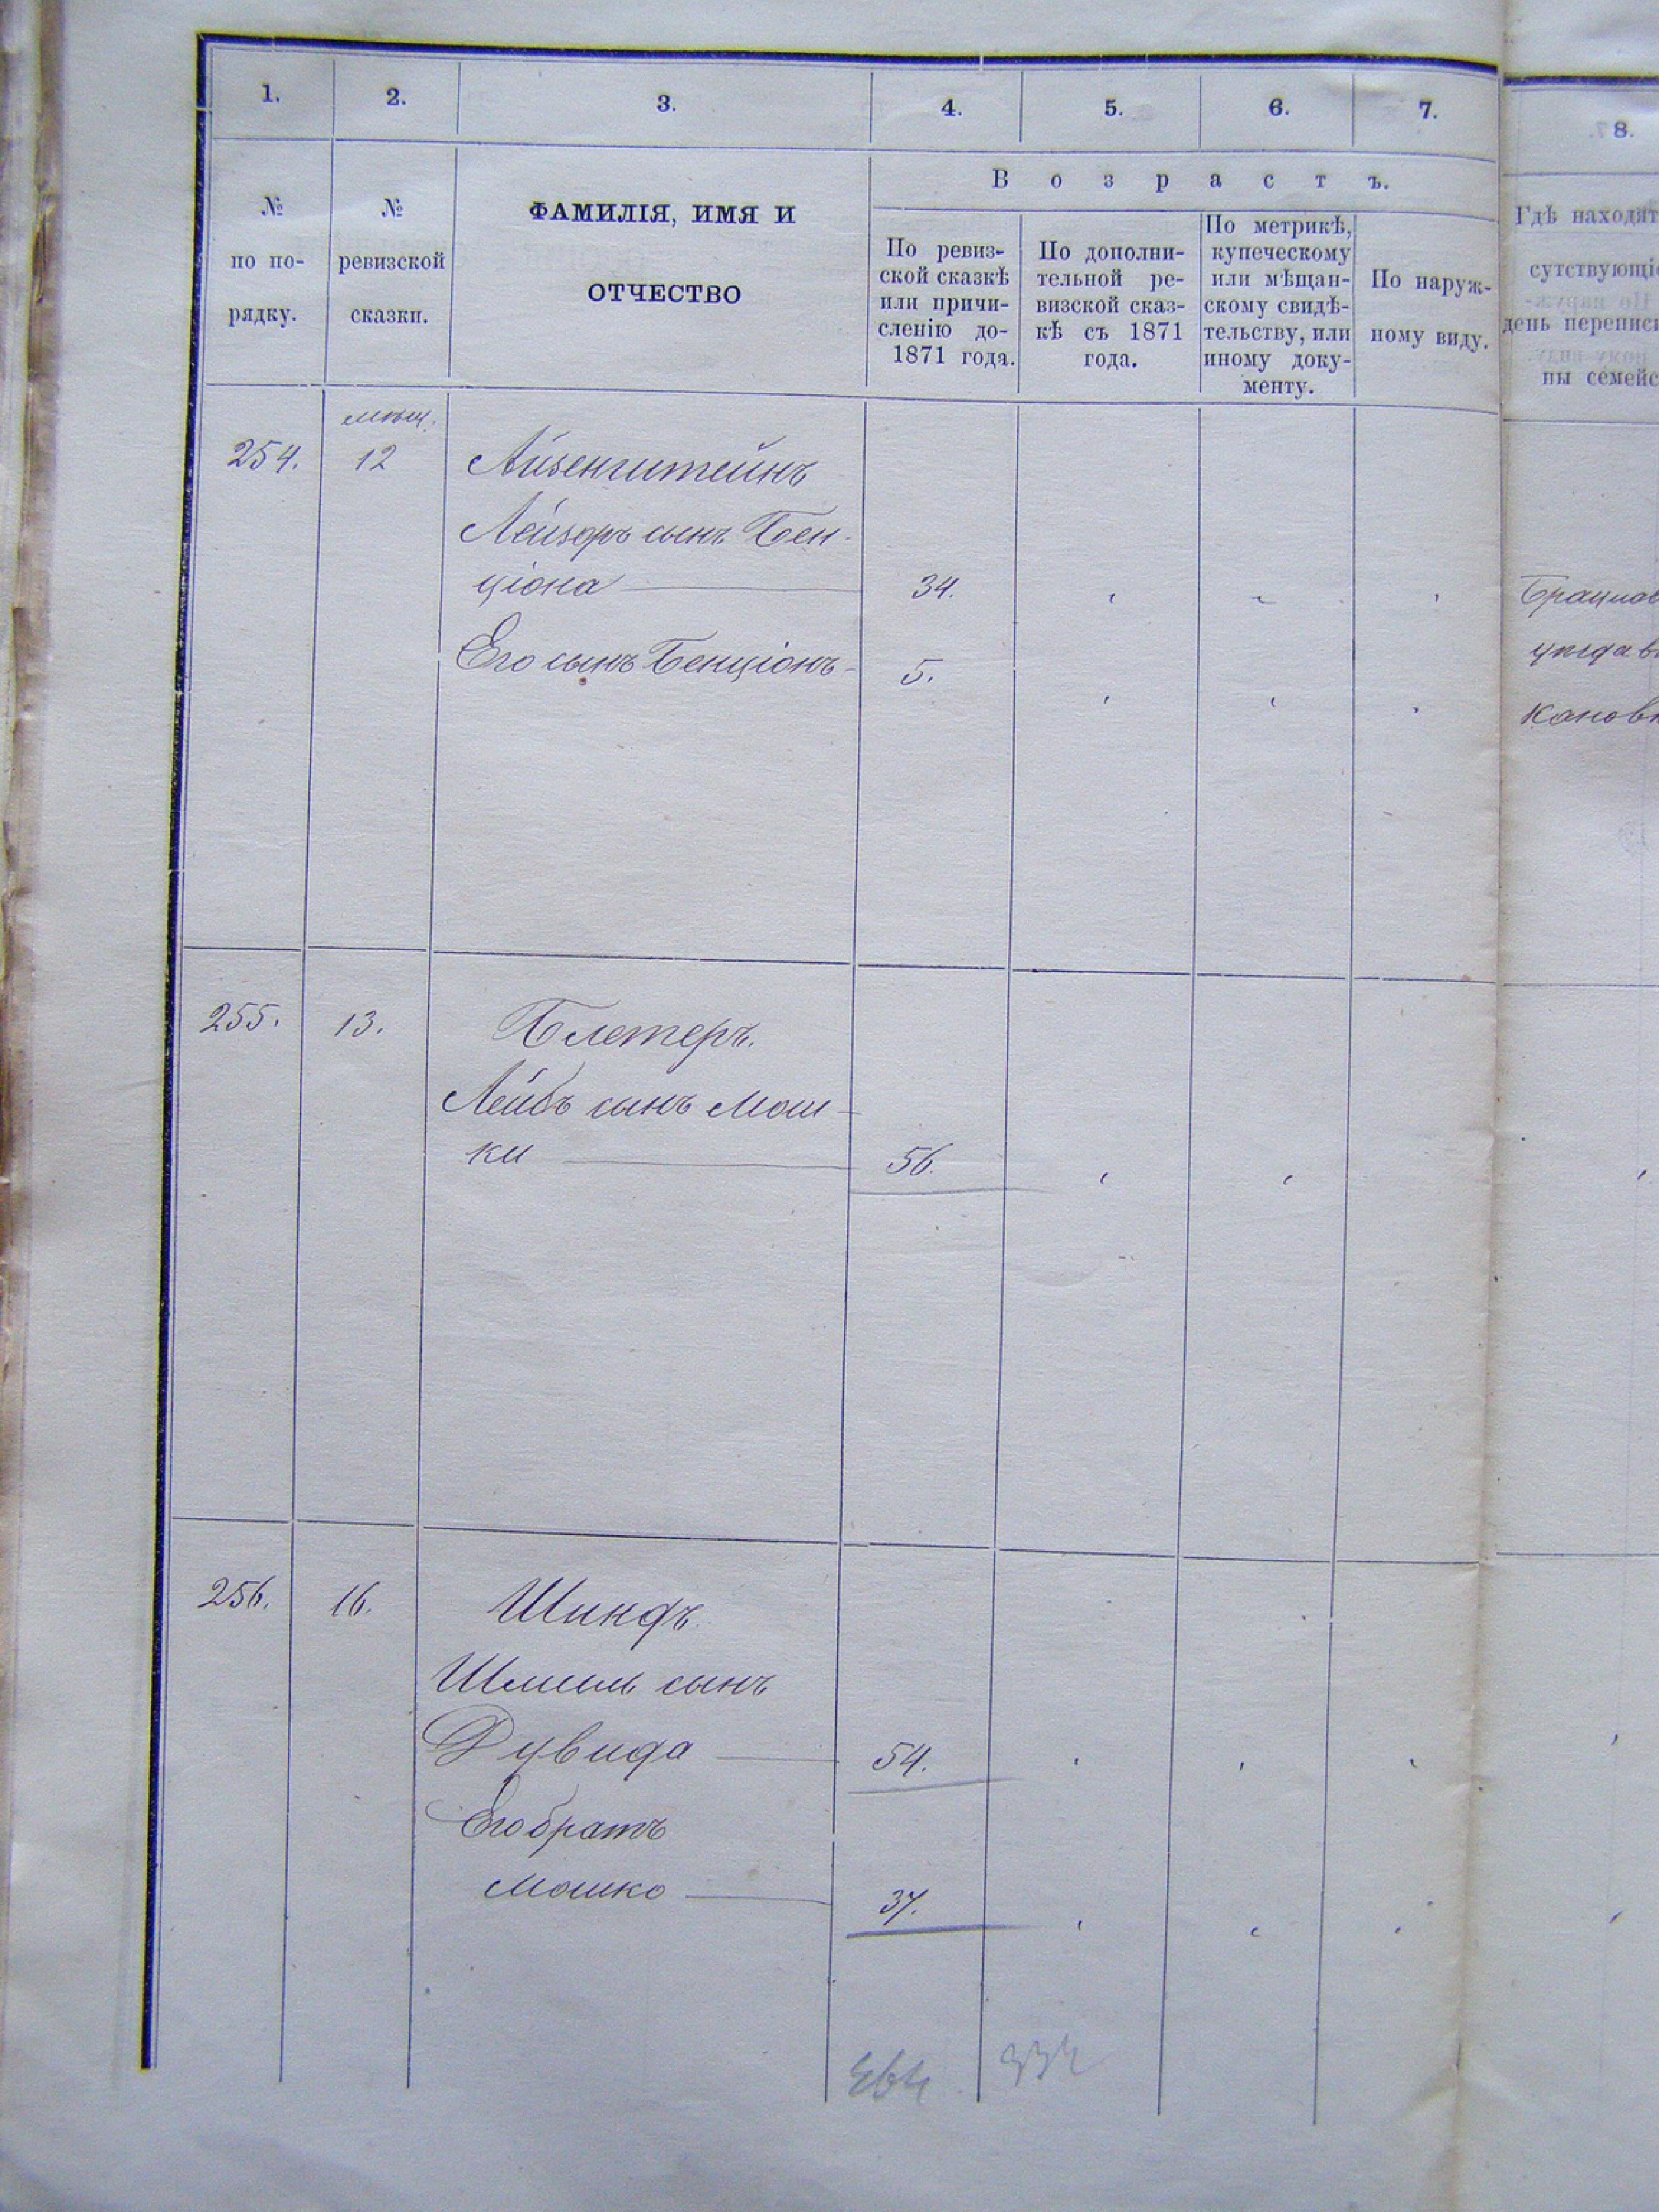 1. 2. 3. 4. 5. 6. 7. 8.
В о з р а с т ъ.
№ по по- рядку.
№ ревизской сказки.
ФАМИЛІЯ, ИМЯ И
ОТЧЕСТВО
По ревиз-
ской сказкѣ
или причи-
сленію до-
1871 года.
По дополни-
тельной ре-
визской сказ-
кѣ съ 1871
года.
По метрикѣ,
купеческому
или мѣщан-
скому свидѣ-
тельству, или
иному доку-
менту.
По наруж-
ному виду.
Гдѣ находят
сутствующіе
день переписи
ны семейс
мѣщ.
254. 12 Айзенштейнъ
Лейзоръ сынъ Бен-
ціона 34.
Его сынъ Бенціонъ 5.
Брацлав
уѣзда в
кановк
255. 13. Блетеръ.
Лейбъ сынъ Мош-
ки 56.
256. 16. Шинфъ
Шмиль сынъ
Дувида 54.
Его братъ
Мошко 37.